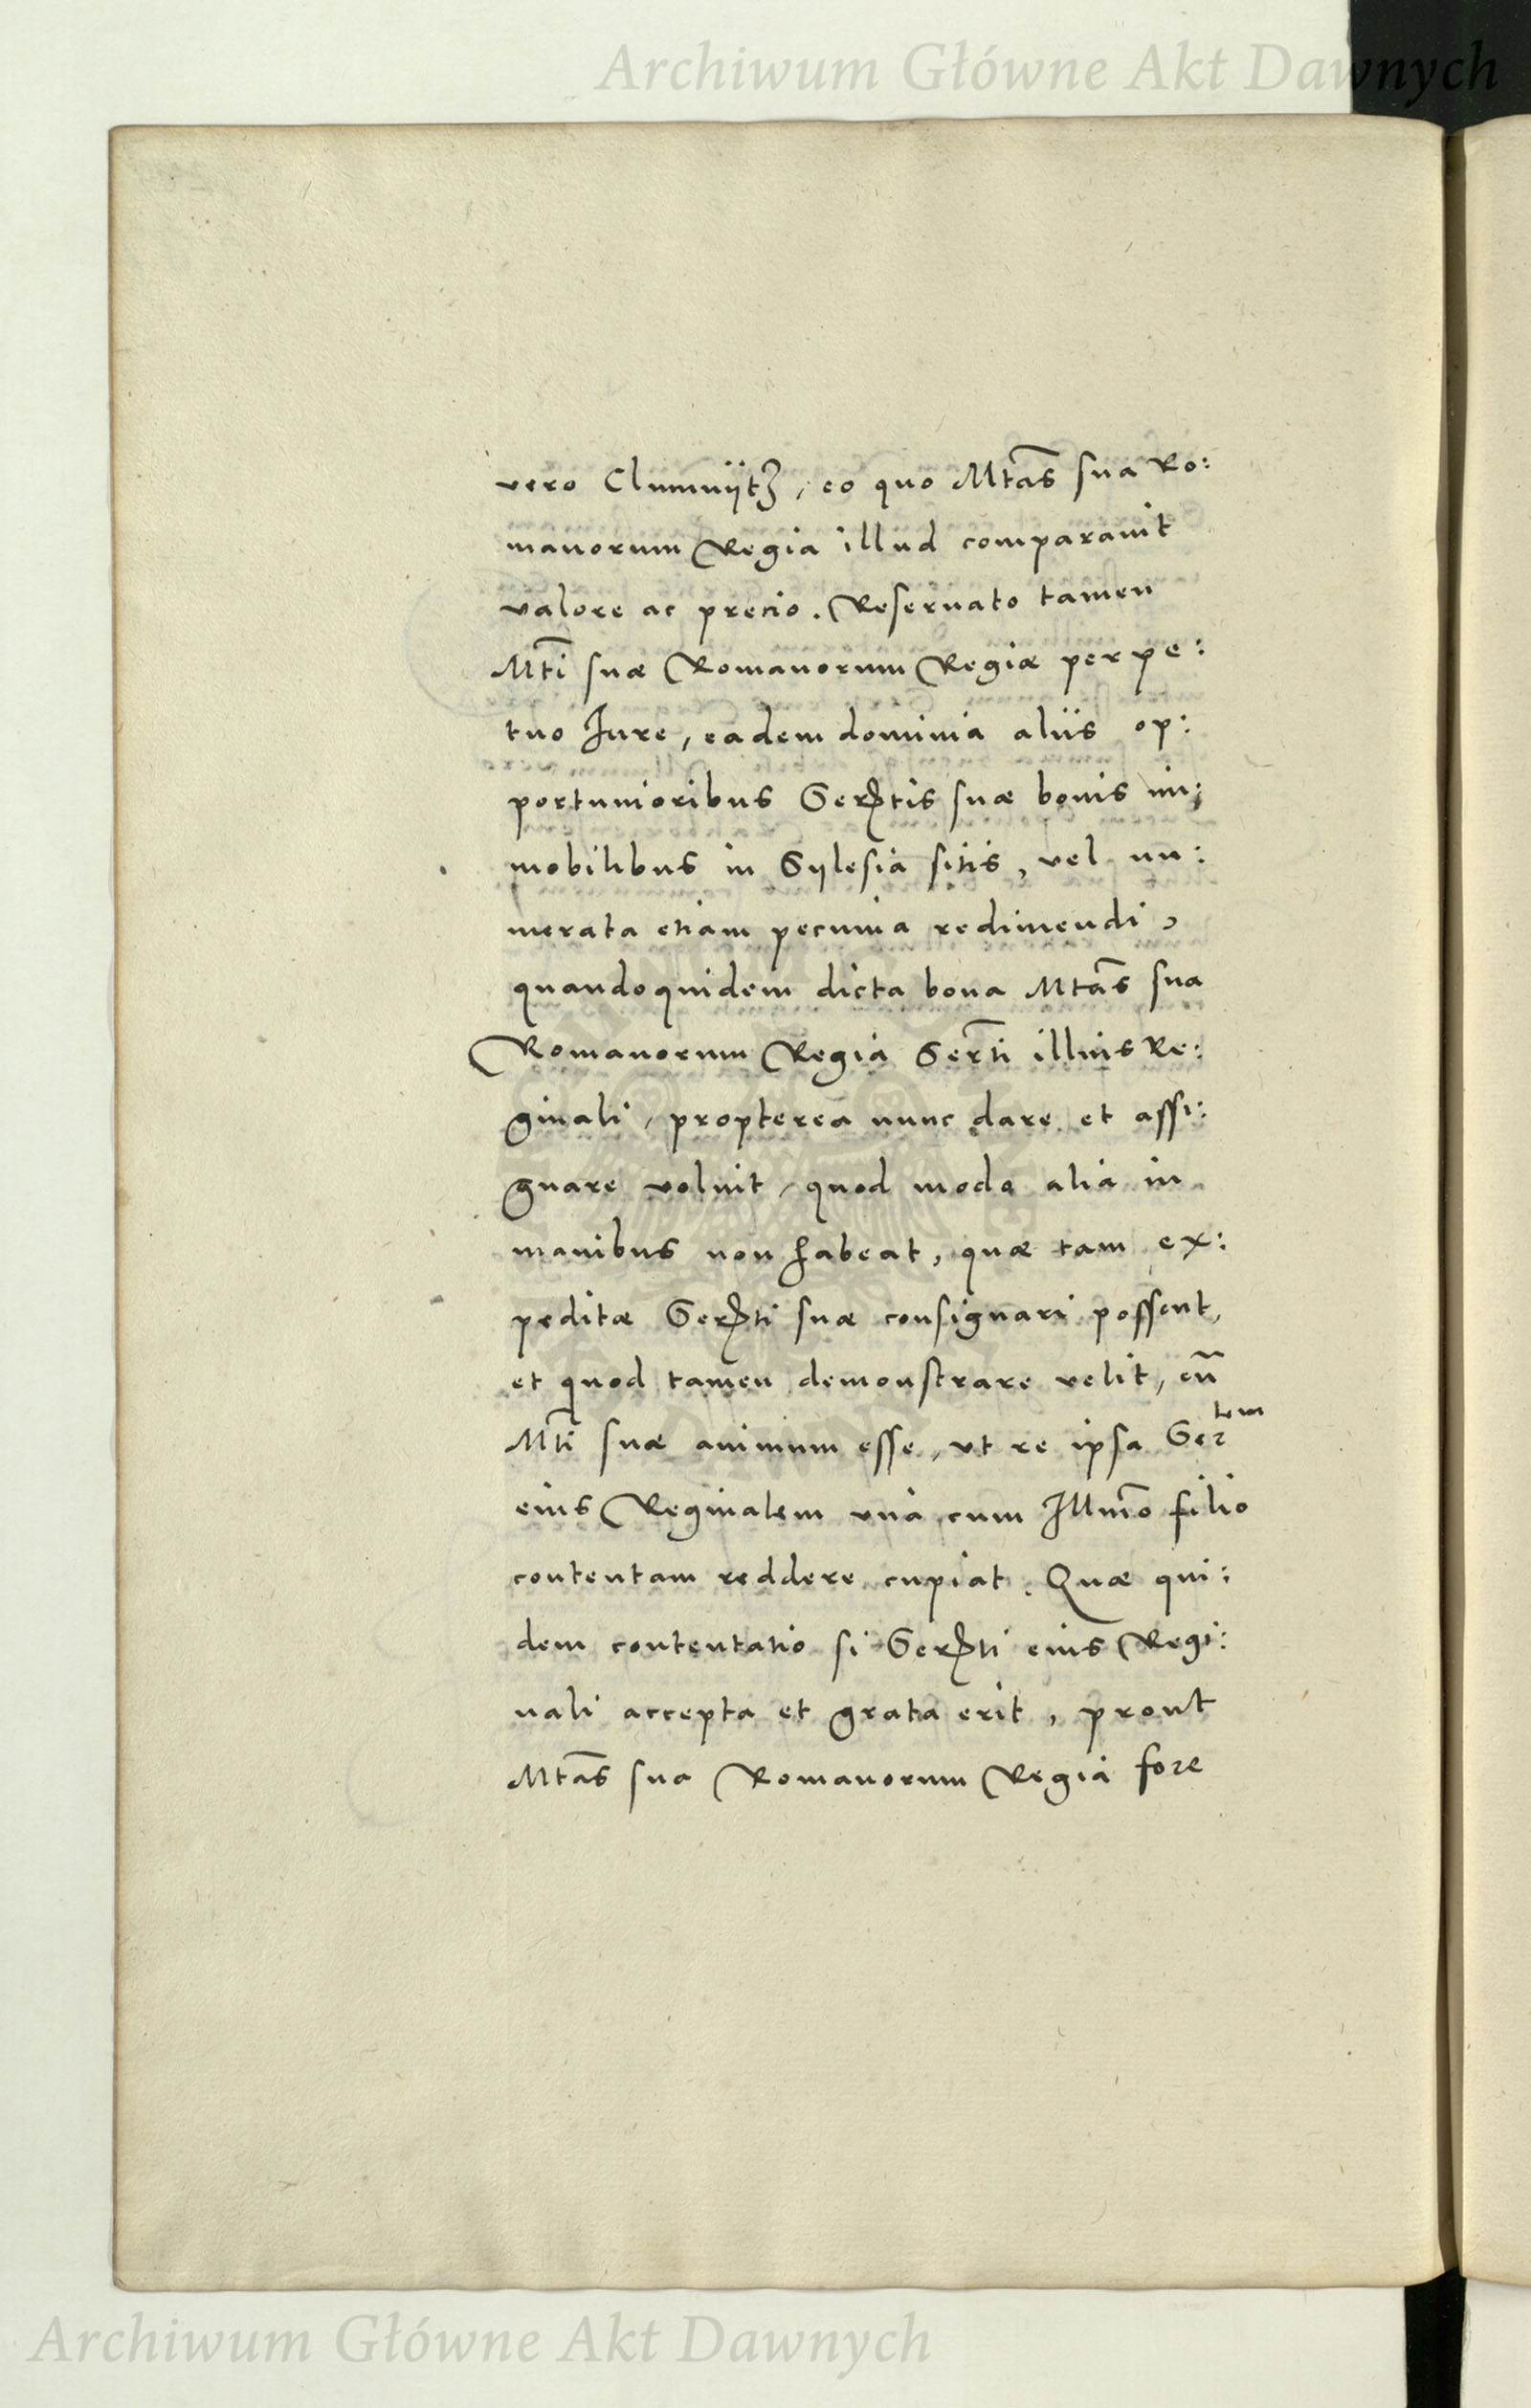 Archiwum Główne Akt Dawnych
vero Clumnijtz, eo quo Mtas sua Ro:
manorum Regia illud comparavit
valore ac precio. Reservato tamen
Mti suæ Romanorum Regiæ perpe:
tuo Jure, eadem dominia aliis op:
portunioribus Sertis suæ bonis im:
mobilibus in Sylesia sitis, vel nu:
merata etiam pecunia redimendi,
quandoquidem dicta bona Mtas sua
Romanorum Regia Serti illius Re:
ginali, propterea nunc dare et assi:
gnare voluit, quod modo alia in
manibus non habeat, quæ tam ex:
peditæ Serti suæ consignari possent,
et quod tamen demonstrare velit, eū
Mti suæ animum esse, ut re ipsa Sertem
eius Reginalem una cum Illmo filio
contentam reddere cupiat. Quæ qui:
dem contentatio si Serti eius Regi:
nali accepta et grata erit, prout
Mtas sua Romanorum Regia fore
Archiwum Główne Akt Dawnych